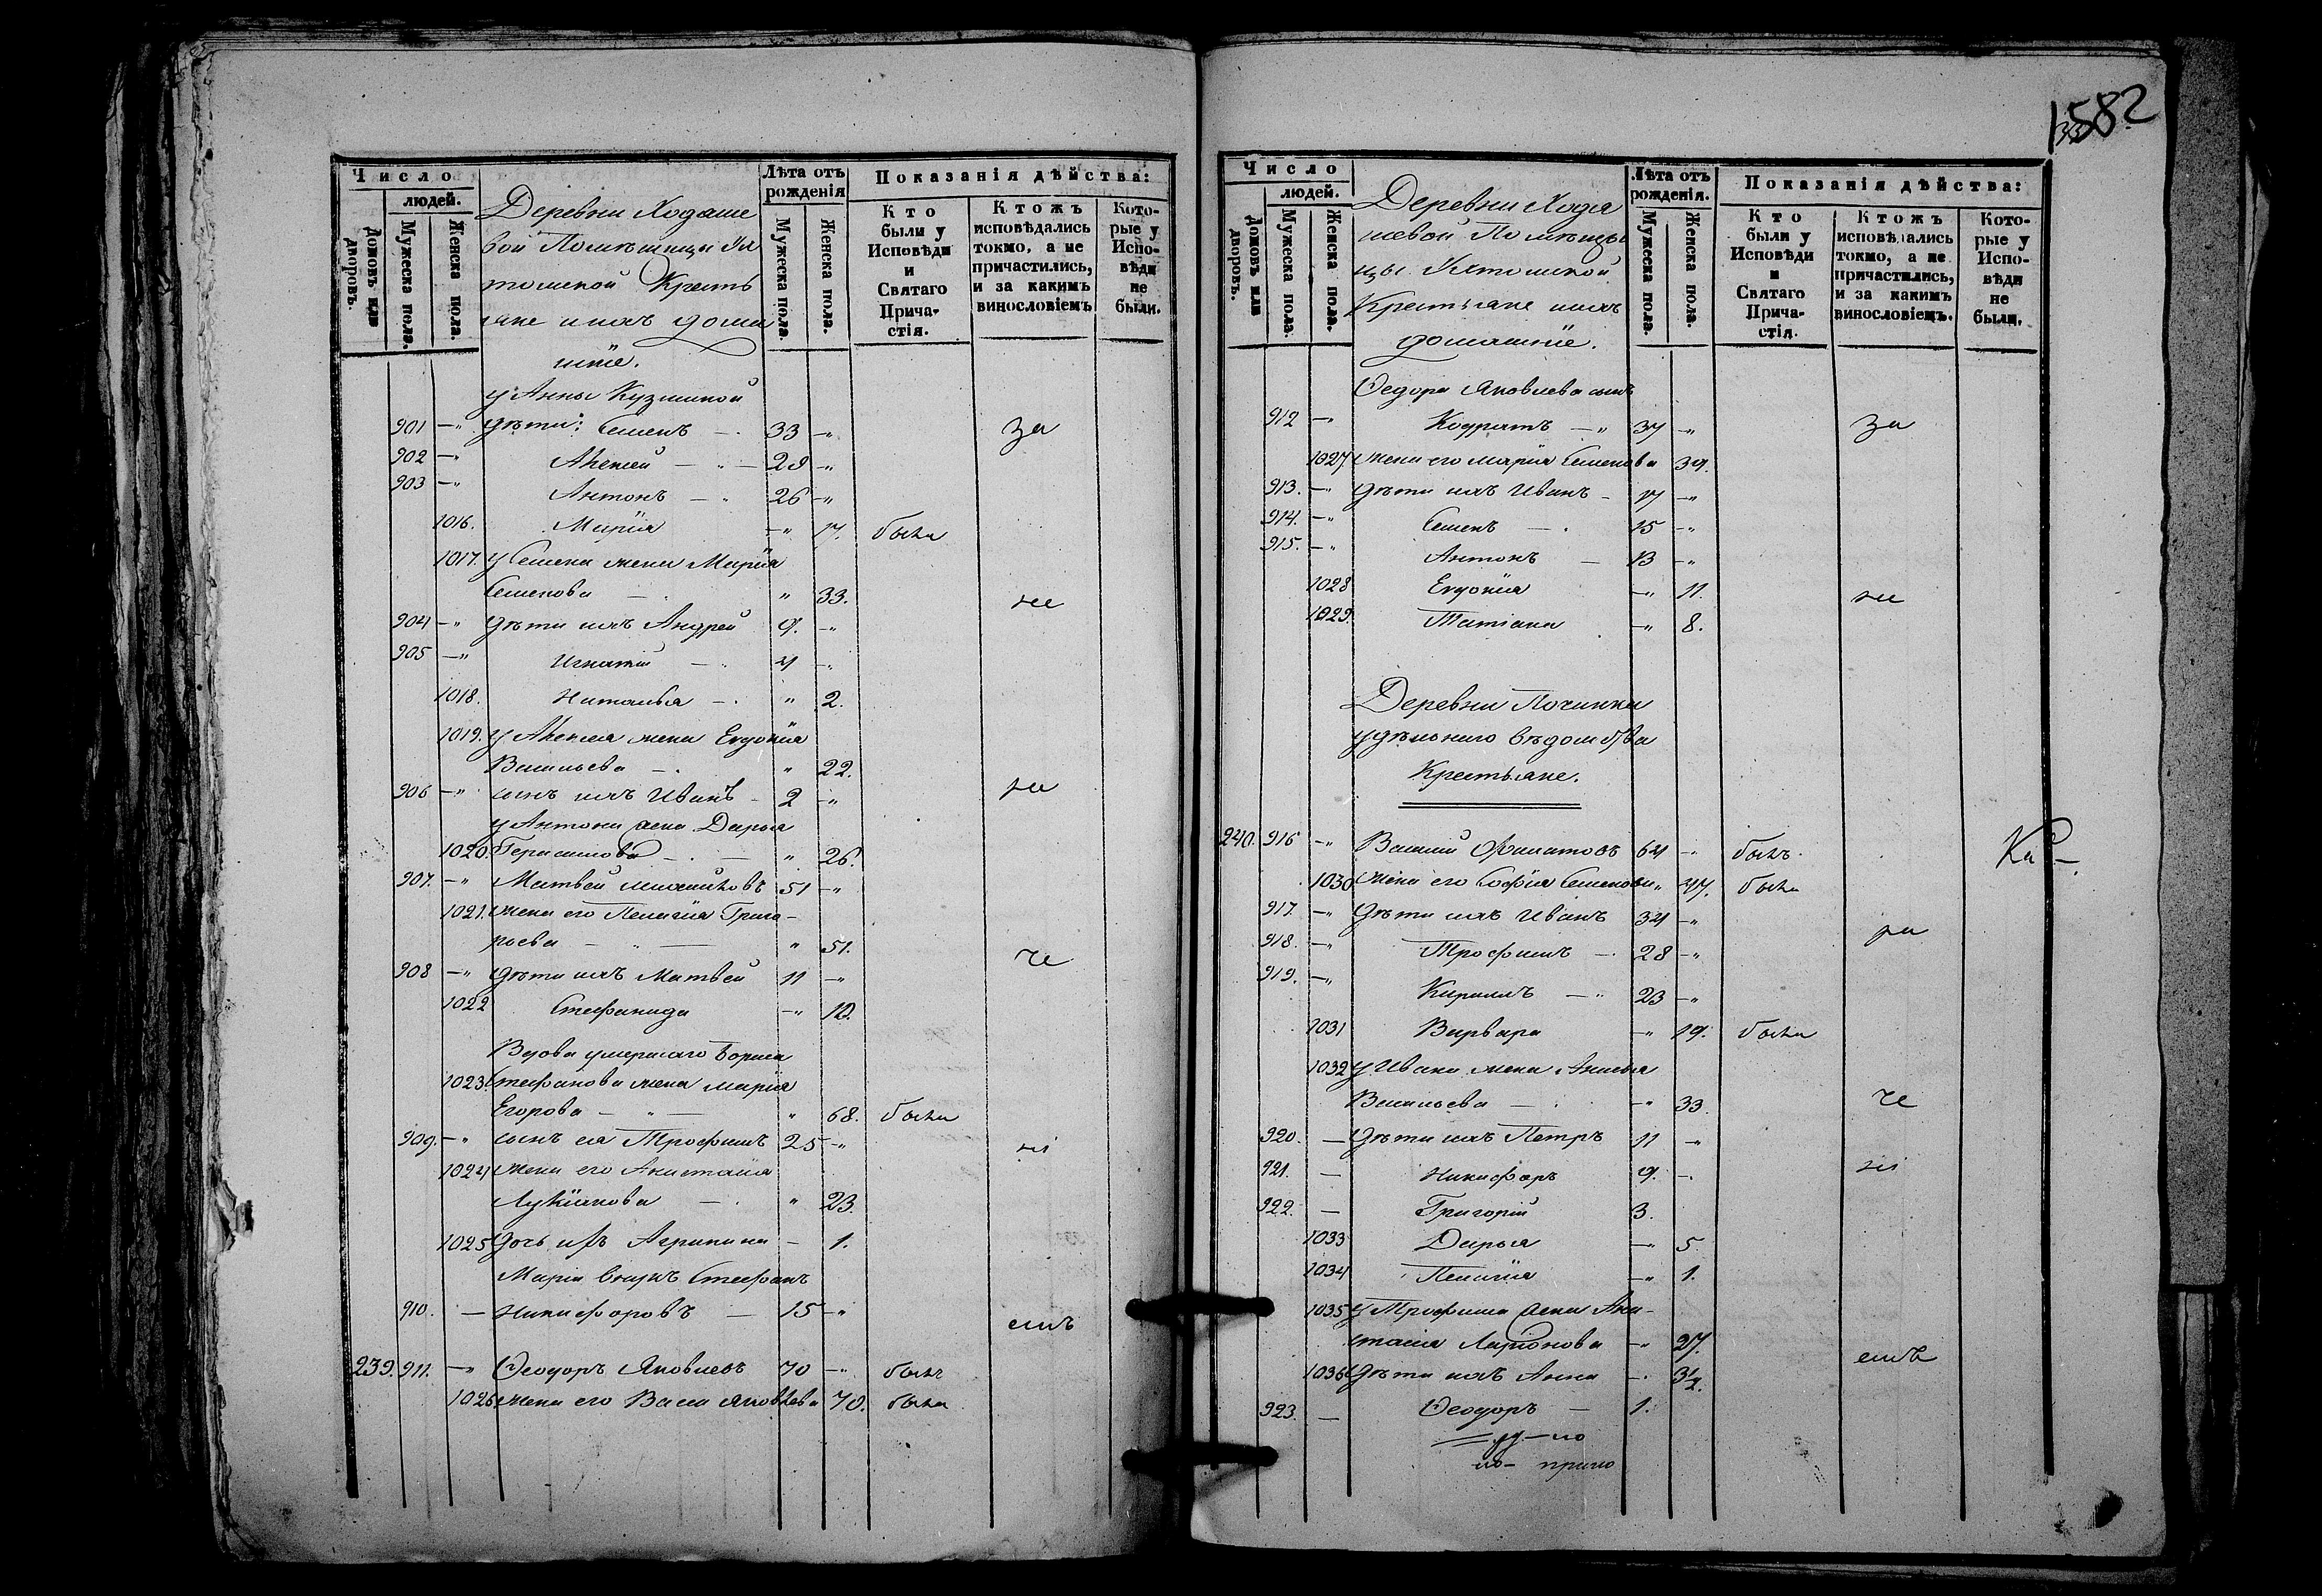 Число
людей.
Домовъ или дворовъ.
Мужеска пола.
Женска пола.
Деревни Ходаше
вой Помѣщицы Ух
томской Кресть
яне и ихъ домаш
нiе.
Лѣта отъ рожденiя
Мужеска пола.
Женска пола.
Показанiя дѣйства:
Кто были у Исповѣди и Святаго Прича-стiя.
Ктожъ исповѣдались токмо, а не причастились, и за какимъ винословіемъ
Кото-рые у Испо-вѣди не были.
у Анны Кузминой
901 —" дѣти: Семенъ — 33 —" за
902 —" Алексѣй — 29 —"
903 —" Антонъ — 26 —"
1016. Марiя —" 17. была
1017. у Семена жена Марiя
Семенова — " 33. не
904 —" дѣти ихъ Андрей 9. —"
905 —" Игнатiй — 4 —"
1018. Наталья — " 2.
1019. у Алексѣя жена Евдокiя
Васильева — " 22.
906 —" сынъ ихъ Иванъ — 2 —" ра
у Антона жена Дарья
1020. Герасимова — " 26.
907. —" Матвей 51 —"
1021. жена его Пелагiя Григо-
рьева — " — " 51. че
908 —" дѣти ихъ Матвей 11 —"
1022 Стефанида —" 10.
Вдова умершаго Бориса
1023. Стефанова жена Марiя
Егорова — " — " 68. была
909. —" сынъ ея Трофимъ 25 —" нi
1024 жена его Анастасiя
Лукiянова — " 23.
1025 дочь ихъ Агрипина — 1.
Марiи внукъ Стефанъ
910. — Никифоровъ — 15 —" емъ
239. 911. —" Ѳеодоръ Яковлевъ 70 —" былъ
1026 жена его Васса Яковлева 70. была
1582
Число
людей.
Домовъ или дворовъ.
Мужеска пола.
Женска пола.
Деревни Хода
шевой Помѣщи
цы Ухтомской
Крестьяне и ихъ
домашнiе.
Лѣта отъ рожденiя.
Мужеска пола.
Женска пола.
Показанiя дѣйства:
Кто были у Исповѣди и Святаго Прича-стiя.
Ктожъ исповѣдались токмо, а не причастились, и за какимъ винословіемъ.
Кото-рые у Испо-вѣди не были.
Ѳедора Яковлева сынъ
912 —" Кодратъ —" 37 —" за
1027. жена его Марiя Семенова 39.
913. —" дѣти ихъ Иванъ — 17 —"
914. —" Семенъ — 15 —"
915. —" Антонъ — 13 —"
1028 Евдокiя —" 11. не
1029. Татiана —" 8.
Деревни Починки
удѣльнаго вѣдомства
Крестьяне.
240. 916 —" Василiй Филатовъ 64 —" былъ
1030 жена его Софiя Семенова " 47. была
917. —" дѣти ихъ Иванъ 34 —" ра
918. —" Трофимъ — 28 —"
919. —" Кириллъ —" 23 —"
1031 Варвара —" 19. была
1032 у Ивана жена Анисья
Васильева — —" 33. че
920. — дѣти ихъ Петръ 11 —"
921. — Никифоръ 9. —. нi
922. — Григорiй 3.
1033 Дарья —" 5.
1034 Пелагiя —" 1.
1035 у Трофима жена Ана-
стасiя Ларiонова —" 27.
1036 дѣти ихъ Анна —. 3½. емъ
923. — Ѳеодоръ — 1.